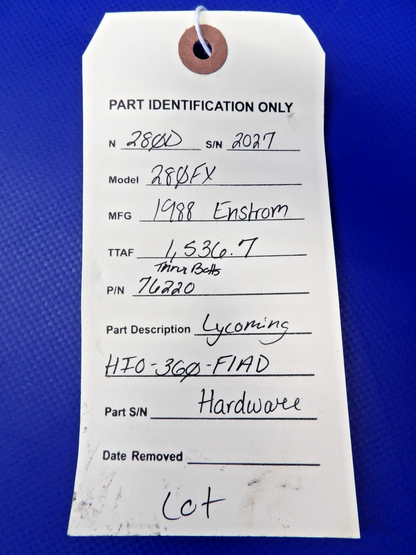 PART IDENTIFICATION ONLY
N 280D S/N 2027
Model 280FX
MFG 1988 Enstrom
TTAF 1,536.7
Thru Bolts
P/N 76220
Part Description Lycoming
HIO-360-F1AD
Part S/N Hardware
Date Removed
Lot